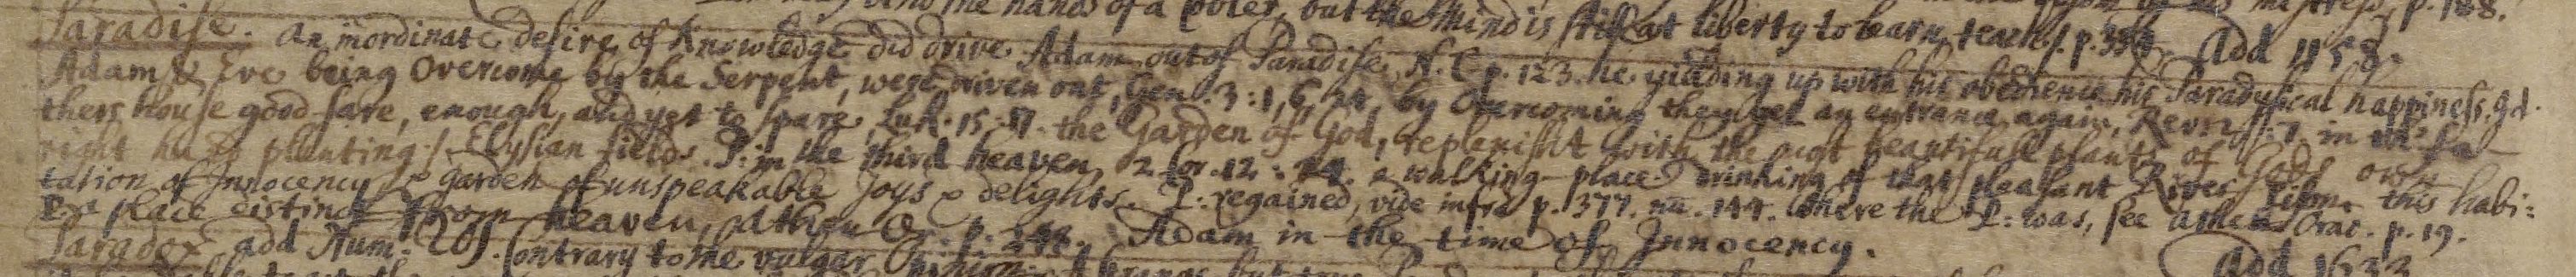 bind the hands of a Poler, but the Mind is still at liberty to learn, teach /. p. 354. mistress, p. 188.
Paradise. An inordinate desire of Knowledge did drive Adam out of Paradise, N. C p. 123. he yielding up with his obedience his Paradysical happiness. Jd. Add 1158.
Adam & Eve being Overcome by the Serpent, were driven out, Gen. 3:1,6,24, by Overcoming they get an entrance again, Revel. :7 in the fa-
thers house good fare, enough, and yet to spare, Luk. 15:17. the Garden of God, replenisht with the most beautifull plants of Gods own
right hands planting /. Elysian fields. P: in the third heaven, 2. Cor. 12: a walking-place drinking of that pleasant River this habi=
tation of Innocency, & garden of unspeakable Joys & delights. P: regained, vide infra p. 377. nu. 144. Where the P: was, see Athen. Orac. p. 19.
place distinct from heaven, Athen Or. p. Adam in the time of Innocency.
Paradox add Num. 261. Contrary to the vulgar Opinion. but true Add 1633